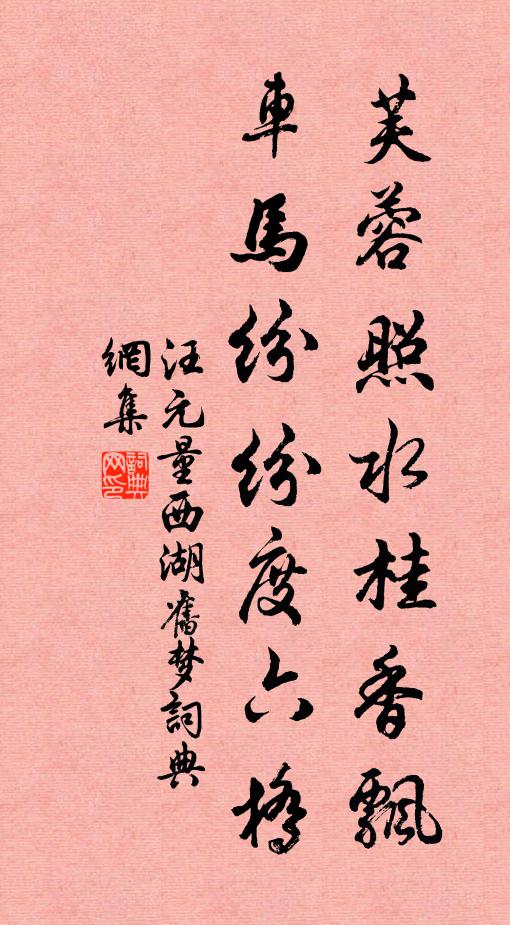 芙蓉照水桂香飄
車馬紛紛度六橋
汪元量西湖舊梦詞典
網集
詞典网印